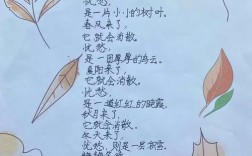 忧愁，
是一片小小的树叶。
春风来了，
它就会消散。
忧愁，
是一团厚厚的乌云。
夏阳来了，
它就会消散。
忧愁，
是一道红红的晚霞。
秋月来了，
它就会消散。
冬天来了，
忧愁，则是一